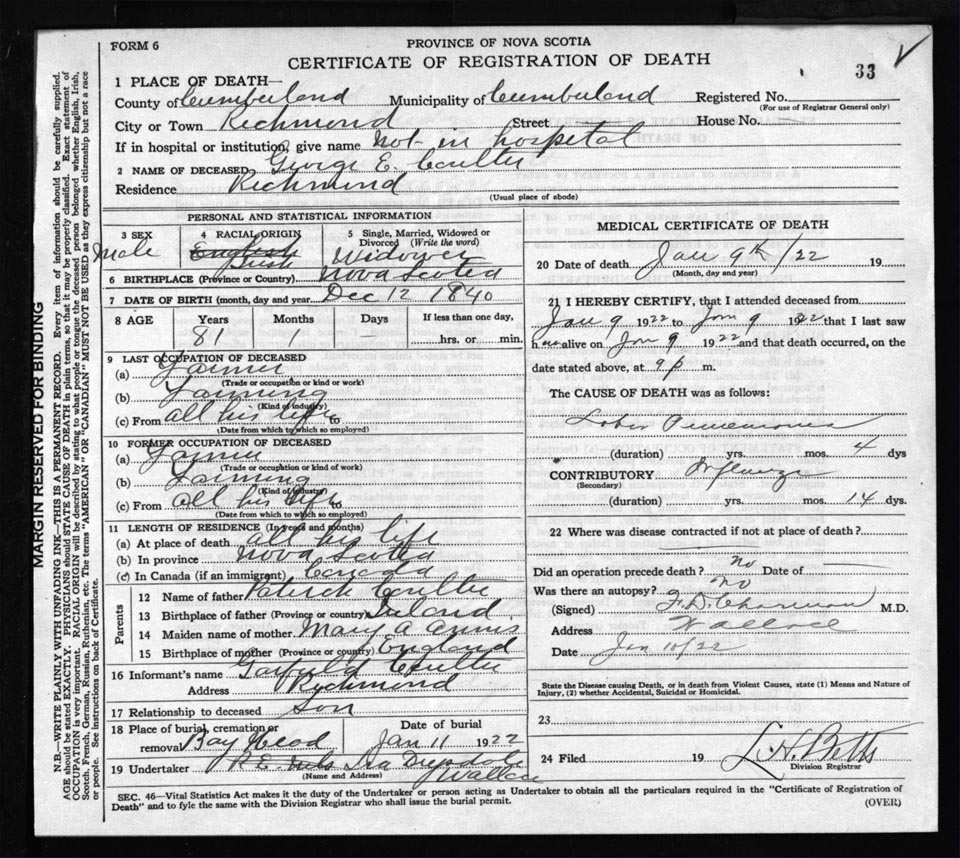 FORM 6
PROVINCE OF NOVA SCOTIA
CERTIFICATE OF REGISTRATION OF DEATH
33
1 PLACE OF DEATH—
County of Cumberland Municipality of Cumberland Registered No.
(For use of Registrar General only)
City or Town Richmond Street House No.
If in hospital or institution, give name Not in hospital
2 NAME OF DECEASED George E. Coulter
Residence Richmond
(Usual place of abode)
PERSONAL AND STATISTICAL INFORMATION
3 SEX
Male
4 RACIAL ORIGIN
English
Irish
5 Single, Married, Widowed or Divorced (Write the word)
Widower
6 BIRTHPLACE (Province or Country) Nova Scotia
7 DATE OF BIRTH (month, day and year) Dec 12 1840
8 AGE Years Months Days If less than one day,
81 1 hrs. or min.
9 LAST OCCUPATION OF DECEASED
(a) Farmer
(Trade or occupation or kind or work)
(b) Farming
(Kind of industry)
(c) From all his life to
(Date from which to which so employed)
10 FORMER OCCUPATION OF DECEASED
(a) Farmer
(Trade or occupation or kind of work)
(b) Farming
(Kind of industry)
(c) From all his life to
(Date from which to which so employed)
11 LENGTH OF RESIDENCE (In years and months)
(a) At place of death all his life
(b) In province Nova Scotia
(c) In Canada (if an immigrant) Canada
Parents
12 Name of father Patrick Coulter
13 Birthplace of father (Province or country) Ireland
14 Maiden name of mother Mary A Annis
15 Birthplace of mother (Province or country) England
16 Informant's name Garfield Coulter
Address Richmond
17 Relationship to deceased Son
18 Place of burial, cremation or removal Bay Head
Date of burial
Jan 11 1922
19 Undertaker R.E. Ira
Wallace
(Name and Address)
MEDICAL CERTIFICATE OF DEATH
20 Date of death Jan 9th /22 19
(Month, day and year)
21 I HEREBY CERTIFY, that I attended deceased from
Jan 9 1922 to Jan 9 1922 that I last saw
h alive on Jan 9 1922 and that death occurred, on the
date stated above, at 9 p m.
The CAUSE OF DEATH was as follows:
Lobar Pneumonia
(duration) yrs. mos. 4 dys
CONTRIBUTORY Influenza
(Secondary)
(duration) yrs. mos. 14 dys.
22 Where was disease contracted if not at place of death?
Did an operation precede death? No Date of
Was there an autopsy? No
(Signed) F. D. Charman M.D.
Address Wallace
Date Jan 10/22
State the Disease causing Death, or in death from Violent Causes, state (1) Means and Nature of
Injury, (2) whether Accidental, Suicidal or Homicidal.
23
24 Filed 19 L. H. Betts
Division Registrar
SEC. 46—Vital Statistics Act makes it the duty of the Undertaker or person acting as Undertaker to obtain all the particulars required in the "Certificate of Registration of
Death" and to fyle the same with the Division Registrar who shall issue the burial permit.
(OVER)
MARGIN RESERVED FOR BINDING
N.B.—WRITE PLAINLY WITH UNFADING INK—THIS IS A PERMANENT RECORD. Every item of information should be carefully supplied.
AGE should be stated EXACTLY. PHYSICIANS should STATE CAUSE OF DEATH in plain terms, so that it may be properly classified. Exact statement of
OCCUPATION is very important. RACIAL ORIGIN will be described by stating to what people or tongue the deceased person belonged whether English, Irish,
Scotch, French, German, Russian, Ruthenian, etc. The terms "AMERICAN" OR "CANADIAN" MUST NOT BE USED as they express citizenship but not a race
or people. See instructions on back of Certificate.